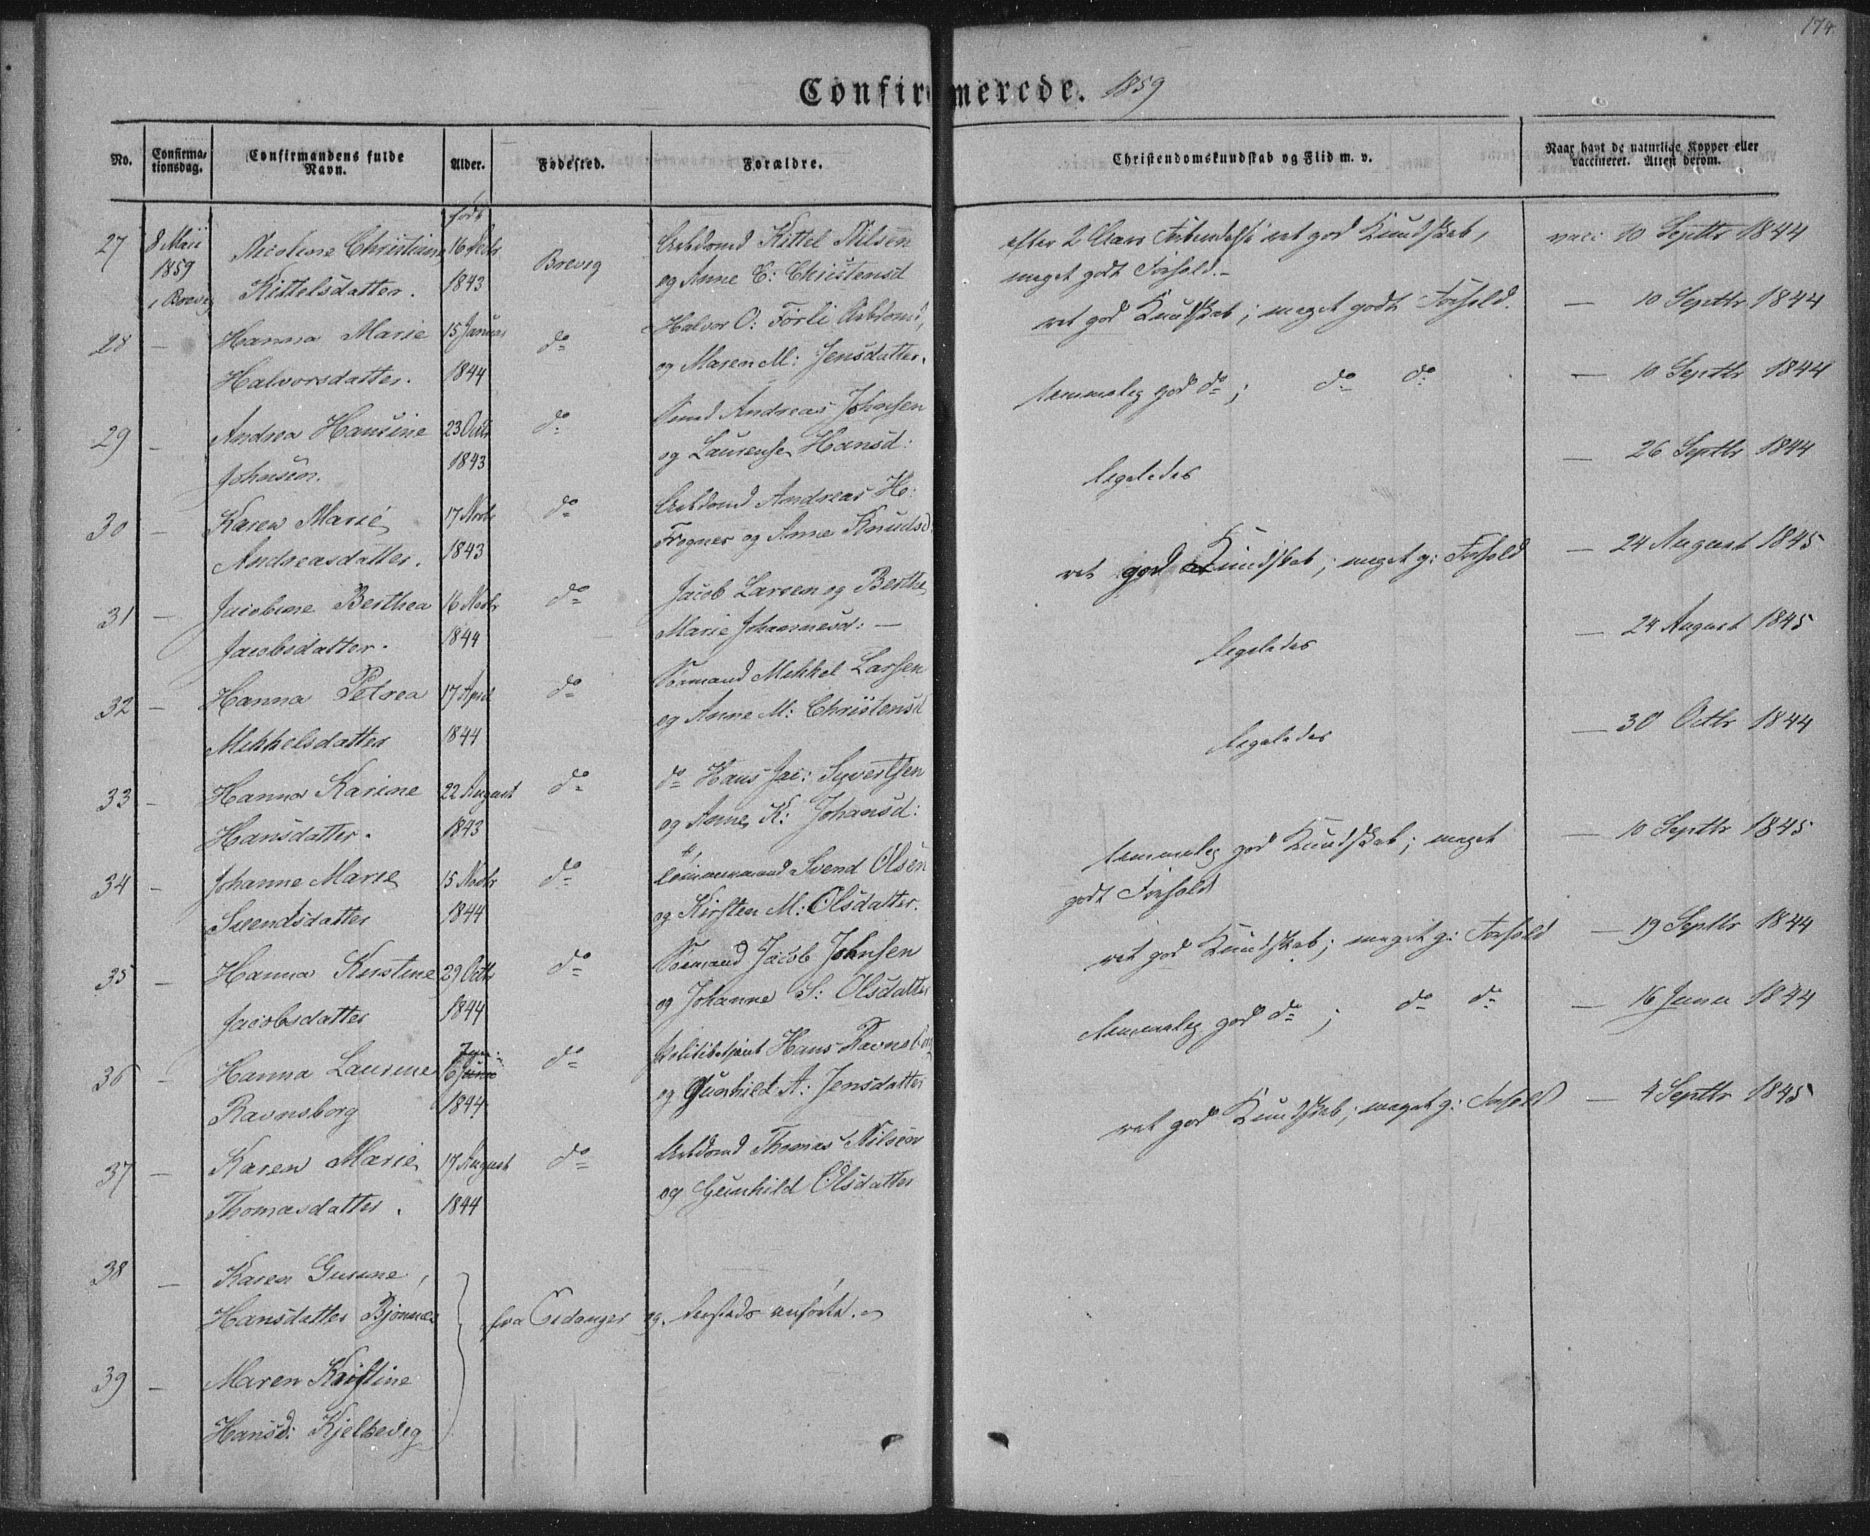 174.
Confirmerede. 1859
No.
Confirma-
tionsdag.
Confirmandens fulde
Navn.
Alder.
Fødested.
Forældre.
Christendomskundskab og Flid m. v.
Naar havt de naturlige Kopper eller
vaccineret. Attest derom.
født
27 8 Maii Nicoline Christiane 16 Brevig Arbdsmd Kittel Nilsen efter 2 Aars ret god Kundskab, vacc 10 Septbr 1844
1859 Kittelsdatter. 1843 og Anne C: Christensd meget godt Forhold.-
i Brevig
28 — Hanna Marie 15 Januar do Halvor O: Førli Arbdsmd, ret god Kundskab; meget godt Forhold. — 10 Septbr 1844
Halvorsdatter. 1844 og Maren M: Jensdatter.
29 — Andrea Hansine 23 Octr do Sømd Andreas Johnsen temmelig god do; do do — 10 Septbr 1844
Johnsen. 1843 og Laurense Hansd:
30 — Karen Marie 17 Novbr do Arbdsmd Andreas H: ligeledes — 26 Septbr 1844
Andreasdatter. 1843 Frogner og Anne Knudsd
31 — Jacobine Berthea 16 Novbr do Jacob Larsen og Berthe ret god Kundskab; meget g: Forhold — 24 August 1845
Jacobsdatter. 1844 Marie Johannesd: —
32 — Hanna Petrea 17 April do Sømand Mekkel Larsen ligeledes — 24 August 1845
Mekkelsdatter 1844 og Anne M: Christensd
33 — Hanna Karine 22 August do do Hans Jac: Syvertsen ligeledes — 30 Octbr 1844
Hansdatter. 1843 og Anne K: Johansd:
34 — Johanne Marie 15 Novbr do Tømmermand Svend Olsen temmelig god Kundskab; meget — 10 Septbr 1845
Svendsdatter 1844 og Kirsten M: Olsdatter. godt Forhold
35 — Hanna Kirstine 29 Octbr do Sømand Jacob Johnsen ret god Kundskab; meget g: Forhold — 19 Septbr 1844
Jacobsdatter 1844 og Johanne S: Olsdatter
36 — Hanna Laurine 6 Juni do Politibetjent Hans Ravnsborg temmelig god do; do do — 16 Juni 1844
Ravnsborg 1844 og Gunhild A: Jensdatter
37 — Karen Marie 17 August do Arbdsmd Thomas Nilsen ret god Kundskab; meget g: Forhold — 4 Septbr 1845
Thomasdatter. 1844 og Gunhild Olsdatter
38 — Karen Gurine,
Hansdatter Bjønnes fra Eidanger og dersteds anførte.
39 — Maren Kristine
Hansd: Kjelsevig